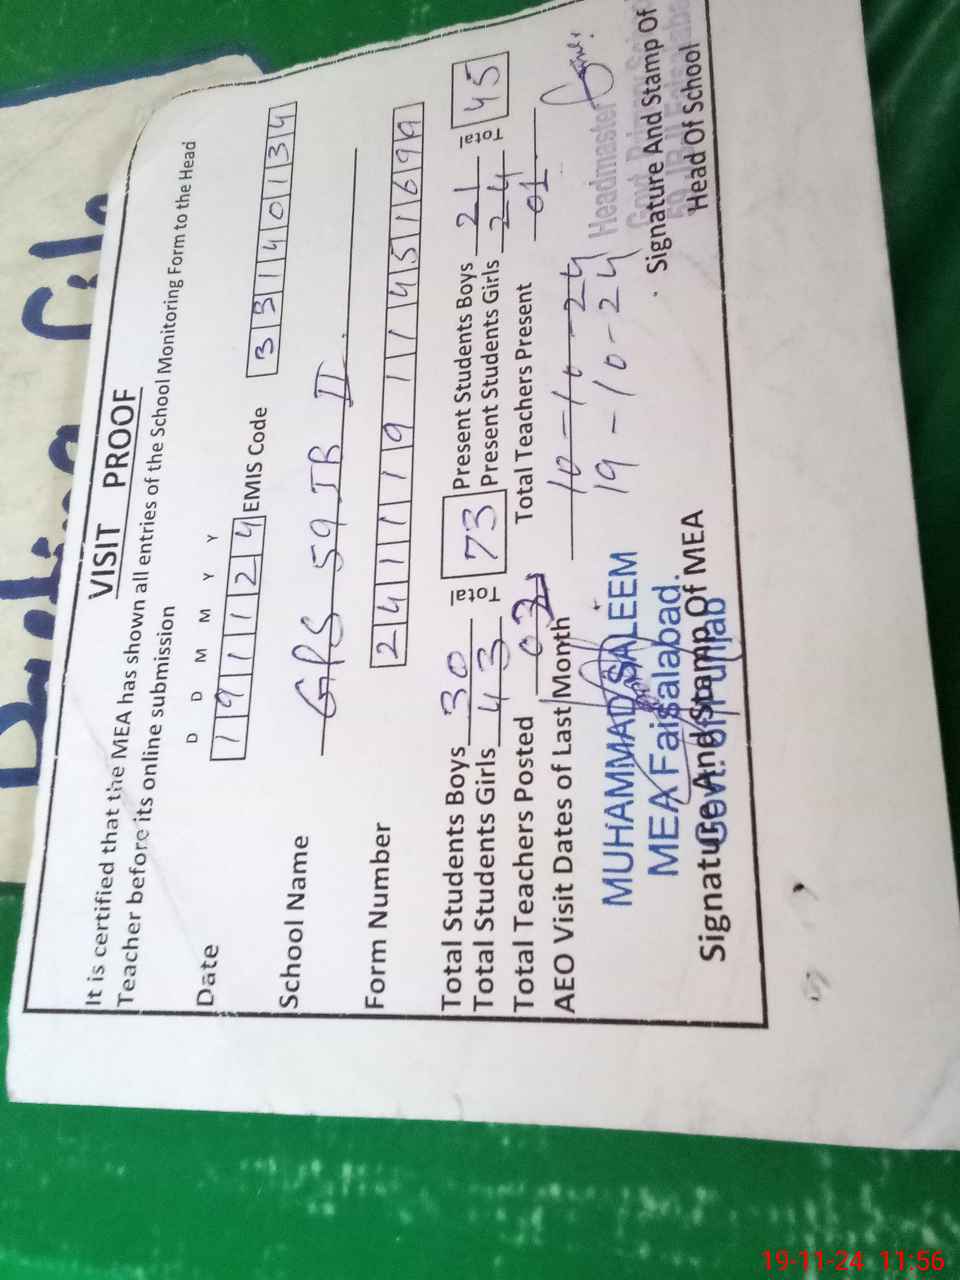 VISIT PROOF
It is certified that the MEA has shown all entries of the School Monitoring Form to the Head
Teacher before its online submission
D D M M Y Y
Date 191124 EMIS Code 33140134
School Name GPS 59 JB II.
Form Number 24111911451699
Total Students Boys 30 Total 73 Present Students Boys 21 Total 45
Total Students Girls 43 Present Students Girls 24
Total Teachers Posted 03 Total Teachers Present 01
AEO Visit Dates of Last Month 10-10-24
19-10-24
MUHAMMAD SALEEM
MEA Faisalabad.
Govt. of Punjab
Signature And Stamp Of MEA
Headmaster
Signature And Stamp Of
Head Of School
19-11-24 11:56